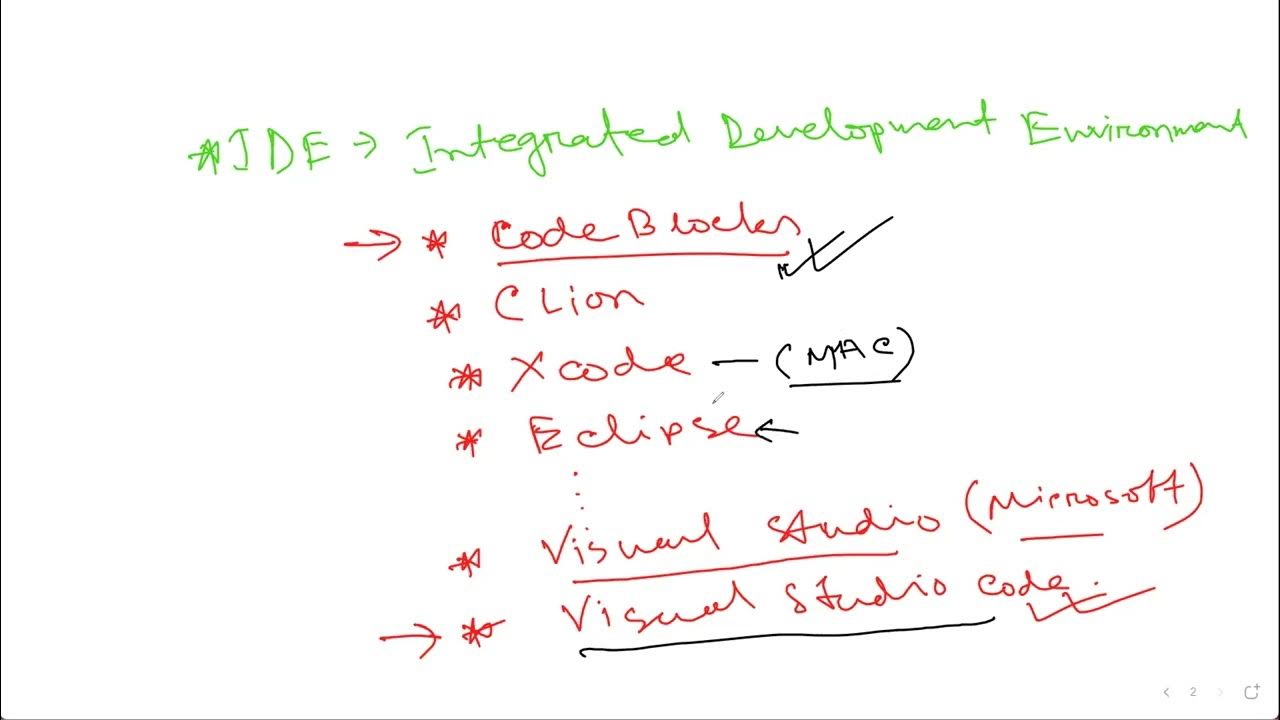 *IDE → Integrated Development Environment
→ * Code Blocks
* CLion
* Xcode — (MAC)
* Eclipse ←
⋮
* Visual Studio (Microsoft)
→ * Visual Studio Code.
2